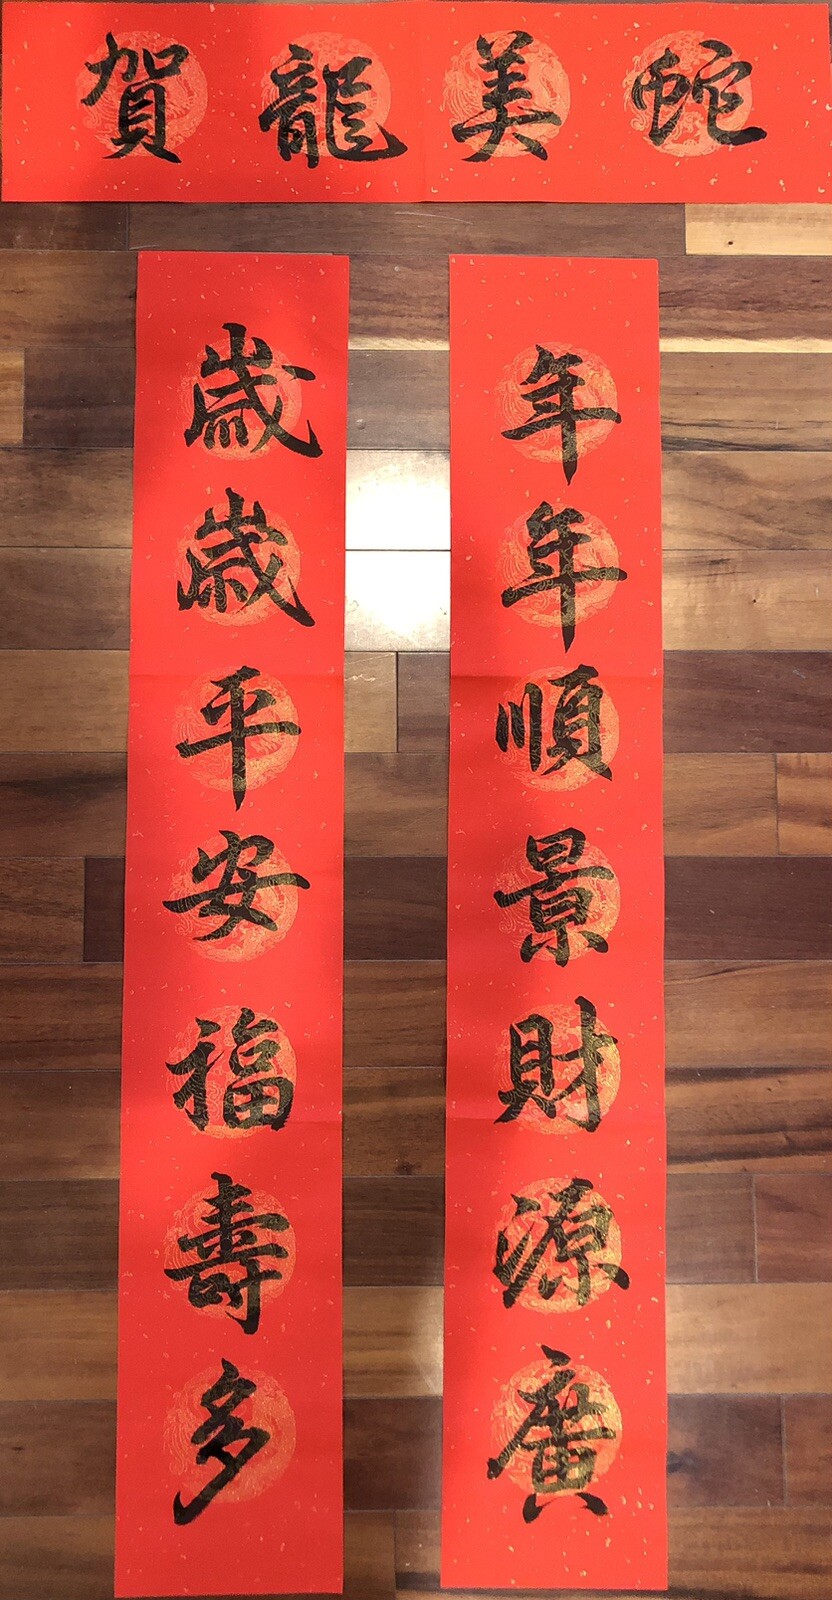 蛇美龍賀
年年順景財源廣
歲歲平安福壽多